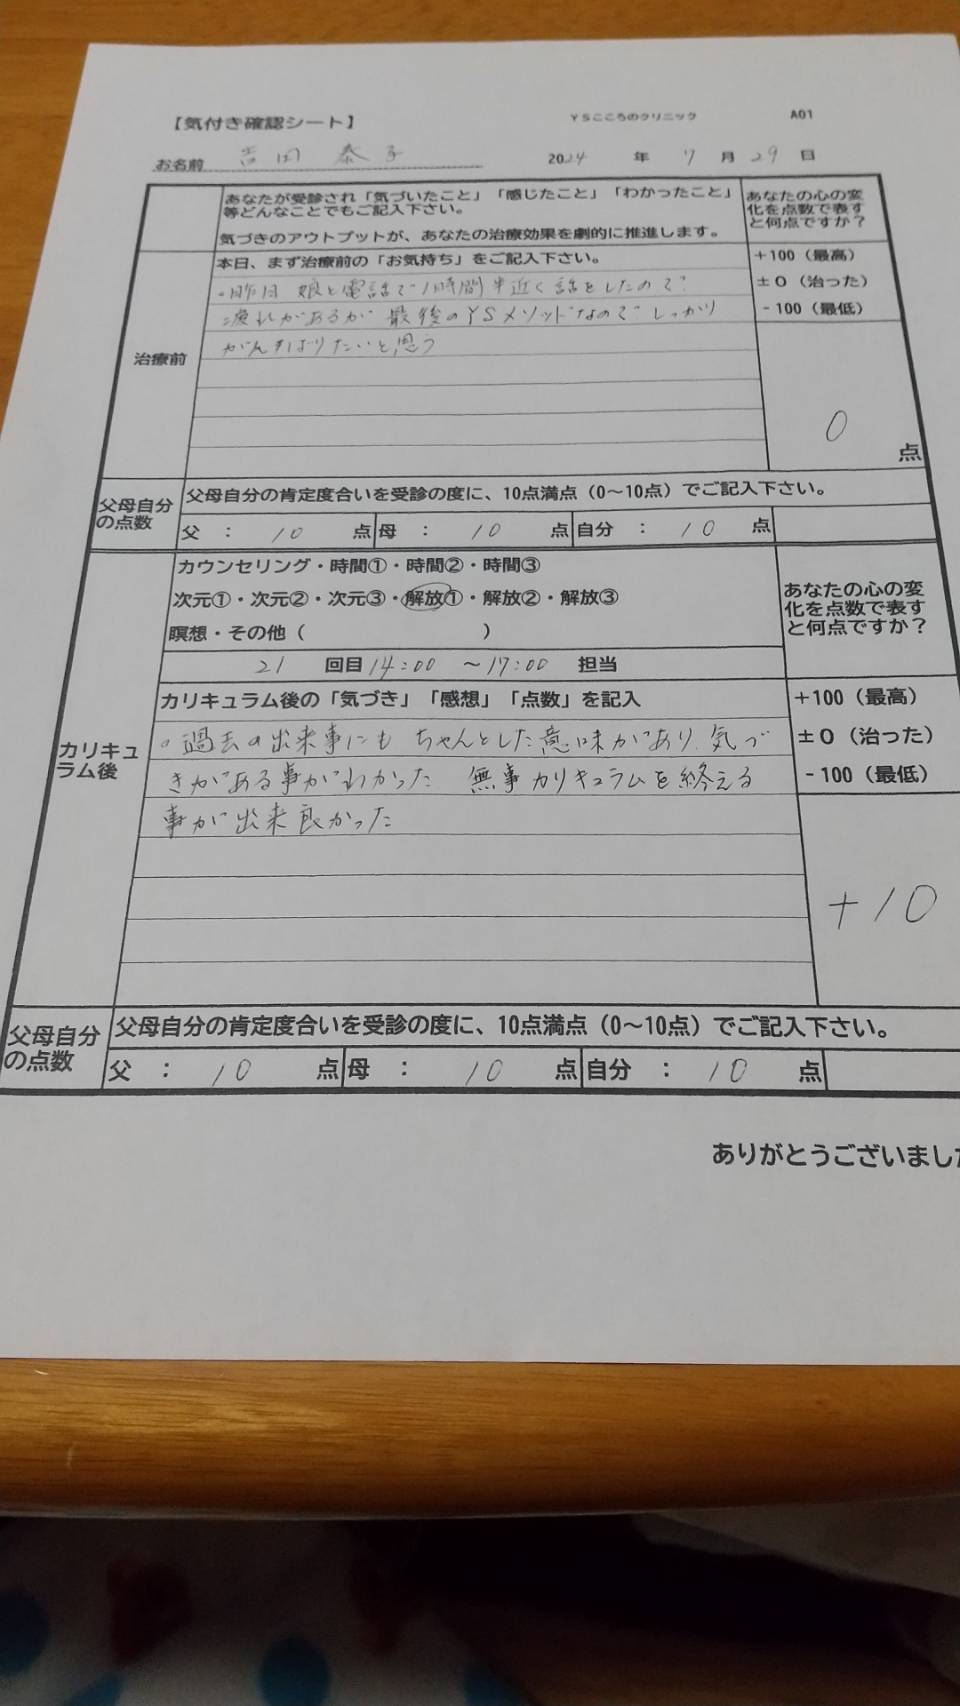 【気付き確認シート】
YSこころのクリニック
A01
お名前 吉田 泰子
2024 年 7 月 29 日
あなたが受診され「気づいたこと」「感じたこと」「わかったこと」
等どんなことでもご記入下さい。
気づきのアウトプットが、あなたの治療効果を劇的に推進します。
あなたの心の変
化を点数で表す
と何点ですか?
治療前
本日、まず治療前の「お気持ち」をご記入下さい。
。昨日 娘と電話で1時間半近く話をしたので
疲れがあるが 最後のYSメソッドなので しっかり
がんばりたいと思う
+100(最高)
±0(治った)
-100(最低)
0
点
父母自分
の点数
父母自分の肯定度合いを受診の度に、10点満点(0~10点)でご記入下さい。
父 : 10 点 母 : 10 点 自分 : 10 点
カリキュ
ラム後
カウンセリング・時間①・時間②・時間③
次元①・次元②・次元③・解放①・解放②・解放③
瞑想・その他( )
21 回目 14:00 ~17:00 担当
あなたの心の変
化を点数で表す
と何点ですか?
カリキュラム後の「気づき」「感想」「点数」を記入
。過去の出来事にも ちゃんとした意味があり、気づ
きがある事がわかった 無事カリキュラムを終える
事が出来良かった
+100(最高)
±0(治った)
-100(最低)
+10
父母自分
の点数
父母自分の肯定度合いを受診の度に、10点満点(0~10点)でご記入下さい。
父 : 10 点 母 : 10 点 自分 : 10 点
ありがとうございました